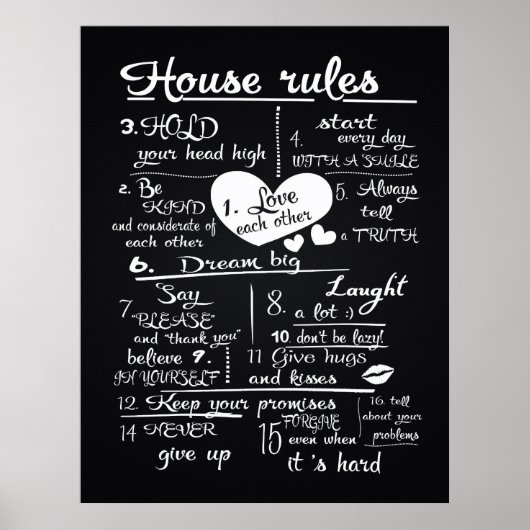 House rules
3. HOLD
your head high
4. start
every day
WITH A SMILE
2. Be
KIND
and considerate of
each other
1. Love
each other
5. Always
tell
a TRUTH
6. Dream big
7 Say
"PLEASE"
and "thank you"
8. Laught
a lot :)
10. don't be lazy!
believe 9.
IN YOURSELF
11 Give hugs
and kisses
12. Keep your promises
14 NEVER
give up
15 FORGIVE
even when
it's hard
16. tell
about your
problems